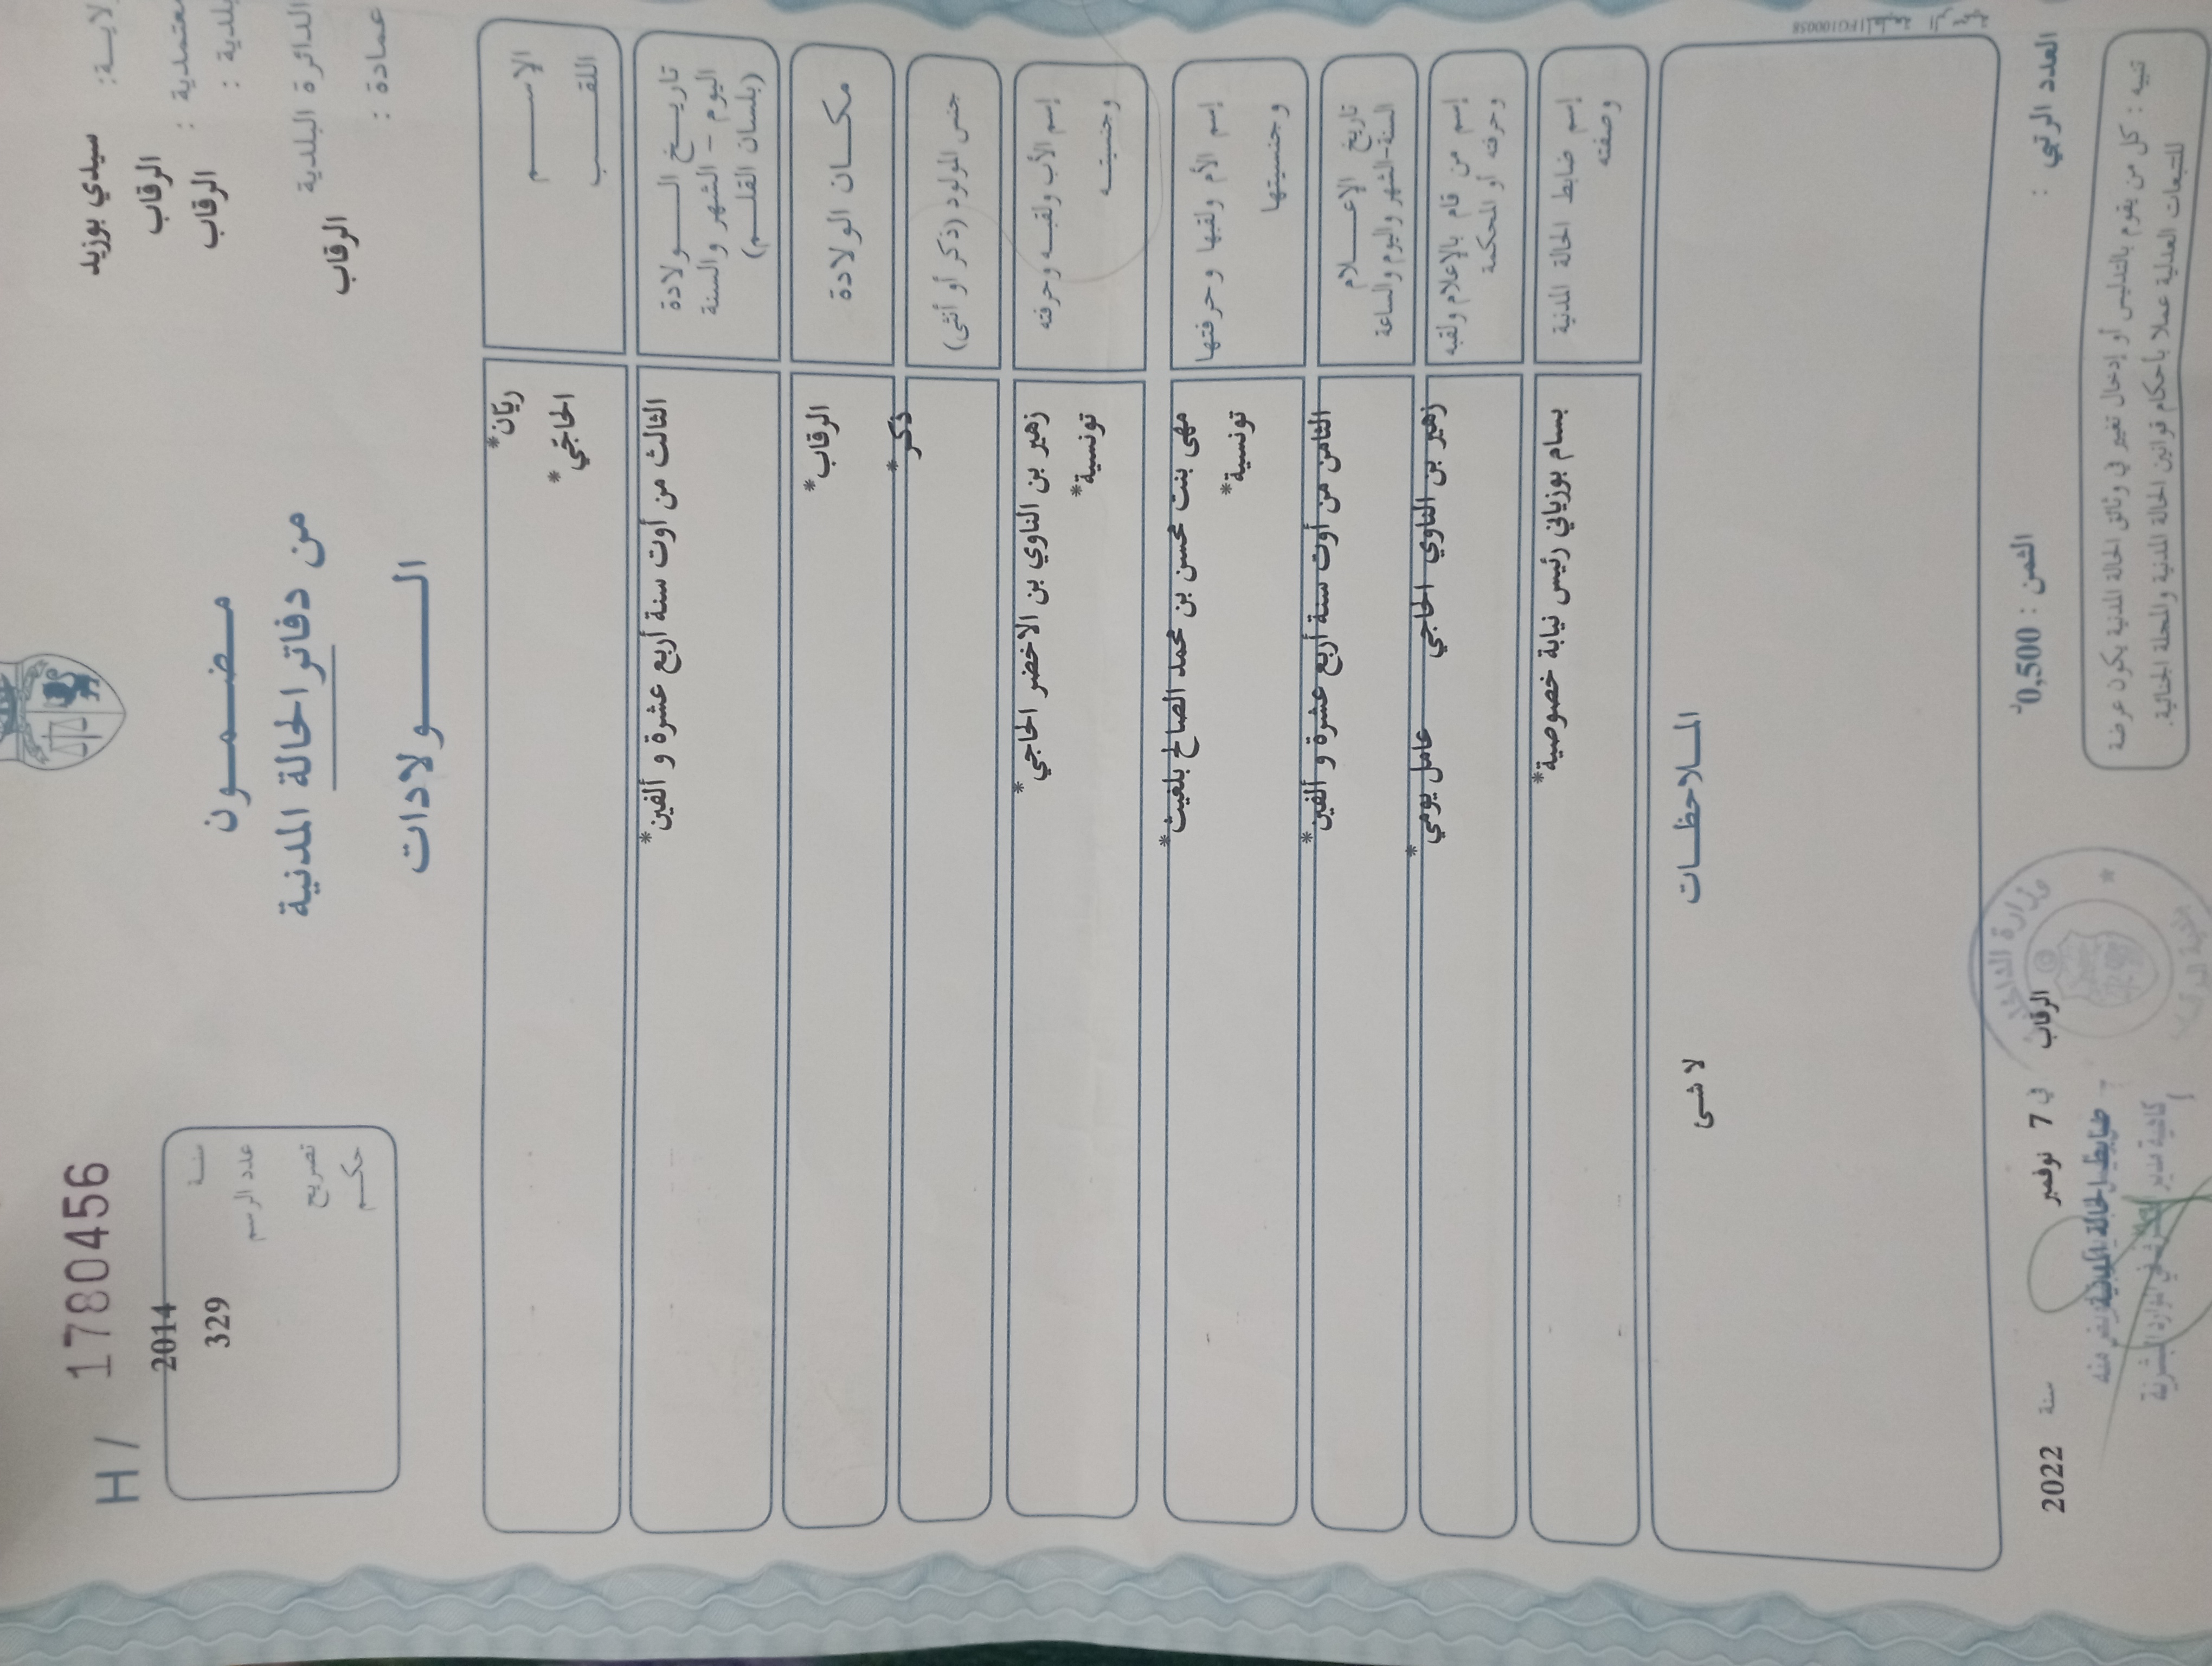 لاية: سيدي بوزيد
معتمدية : الرقاب
بلدية : الرقاب
الدائرة البلدية
الرقاب
عمادة :
H / 1780456
2014
سنة
329
عدد الرسم
تصريح
حكم
مضمون
من دفاتر الحالة المدنية
الولادات
الاسم
ريّان*
اللقب
الحاجي*
تاريخ الولادة
اليوم - الشهر والسنة
(بلسان القلم)
الثالث من أوت سنة أربع عشرة و ألفين*
مكان الولادة
الرقاب*
جنس المولود (ذكر أو أنثى)
ذكر*
إسم الأب ولقبه وحرفته
وجنسيته
زهير بن الناوي بن الاخضر الحاجي*
تونسية*
إسم الأم ولقبها وحرفتها
وجنسيتها
مهى بنت محسن بن محمد الصالح بلغيث*
تونسية*
تاريخ الإعلام
السنة-الشهر واليوم والساعة
الثامن من أوت سنة أربع عشرة و ألفين*
إسم من قام بالإعلام ولقبه
وحرفته أو المحكمة
زهير بن الناوي الحاجي عامل يومي*
إسم ضابط الحالة المدنية
وصفته
بسام بوزياني رئيس نيابة خصوصية*
الملاحظات
لا شى
العدد الرتبي :
الثمن : 0,500د
الرقاب في 7 نوفمبر سنة 2022
تنبيه : كل من يقوم بالتدليس أو إدخال تغيير في وثائق الحالة المدنية يكون عرضة
للتتبعات العدلية عملا بأحكام قوانين الحالة المدنية والمجلة الجنائية.
وزارة الداخلية
ضابط الحالة المدنية